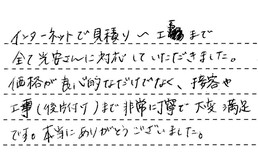 インターネットで見積り〜工事まで
全て光安さんに対応していただきました。
価格が良心的なだけでなく、接客や
工事(後片付け)まで非常に丁寧で大変満足
です。本当にありがとうございました。